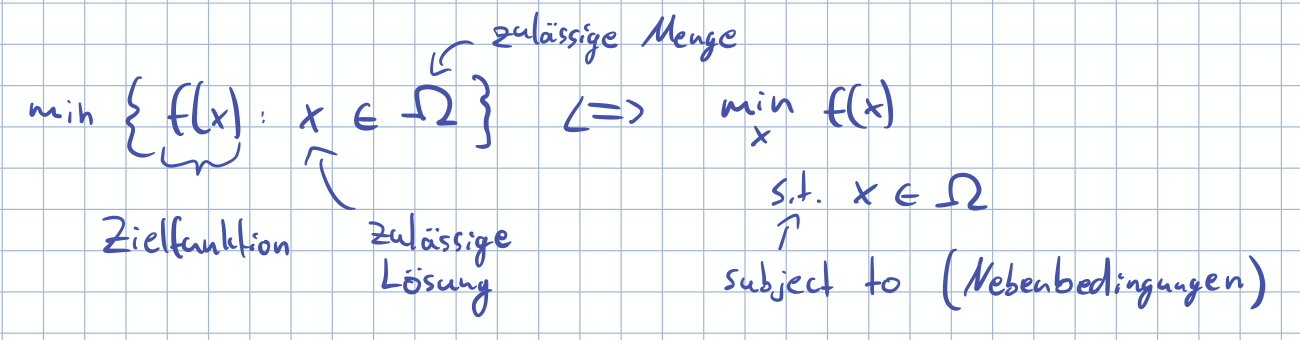 zulässige Menge
min { f(x) : x ∈ Ω } <=> min f(x)
x
s.t. x ∈ Ω
Zielfunktion
zulässige
Lösung
subject to (Nebenbedingungen)